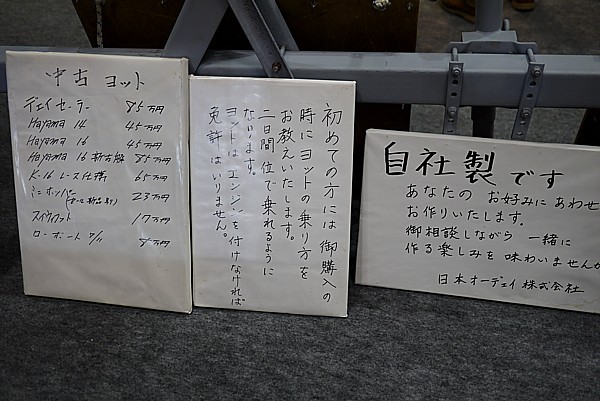 中古 ヨット
デイセーラー 85万円
Hayama 14 45万円
Hayama 16 45万円
Hayama 16 新古艇 85万円
K-16 レース仕様 65万円
ミニホッパー 23万円
スイフト 17万円
ローボート
初めての方には御購入の
時にヨットの乗り方を
お教えいたします。
二日間位で乗れるように
なります。
ヨットはエンジンを付けなければ
免許はいりません。
自社製です
あなたの お好みにあわせ
お作りいたします。
御相談しながら 一緒に
作る楽しみを 味わいませんか
日本オーデェイ 株式会社